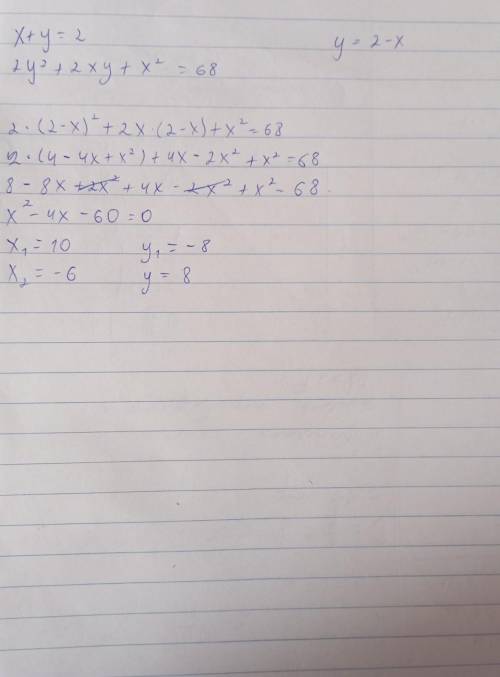 x+y=2 y=2-x
2y²+2xy+x²=68
2·(2-x)²+2x·(2-x)+x²=68
2·(4-4x+x²)+4x-2x²+x²=68
8-8x+2x²+4x-2x²+x²=68
x²-4x-60=0
x₁=10 y₁=-8
x₂=-6 y=8